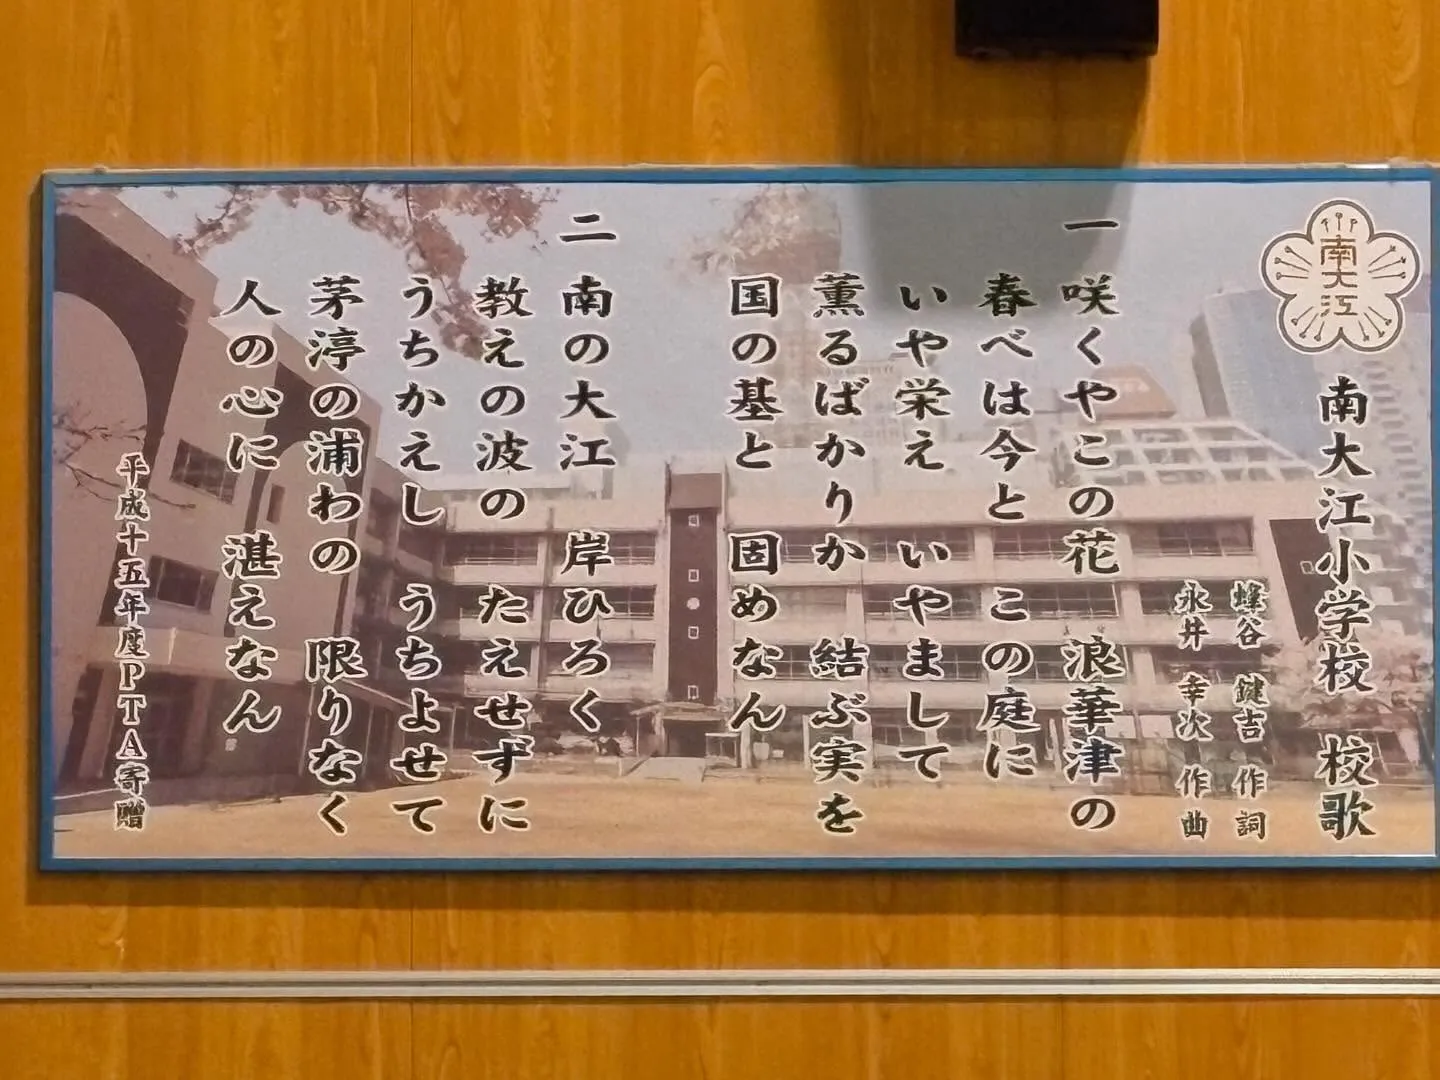 南大江
南大江小学校 校歌
蜂谷 鍵吉 作詞
永井 幸次 作曲
一 咲くやこの花 浪華津の
春べは今と この庭に
いや栄え いやまして
薫るばかりか 結ぶ実を
国の基と 固めなん
二 南の大江 岸ひろく
教えの波の たえせずに
うちかえし うちよせて
茅渟の浦わの 限りなく
人の心に 湛えなん
平成十五年度PTA寄贈